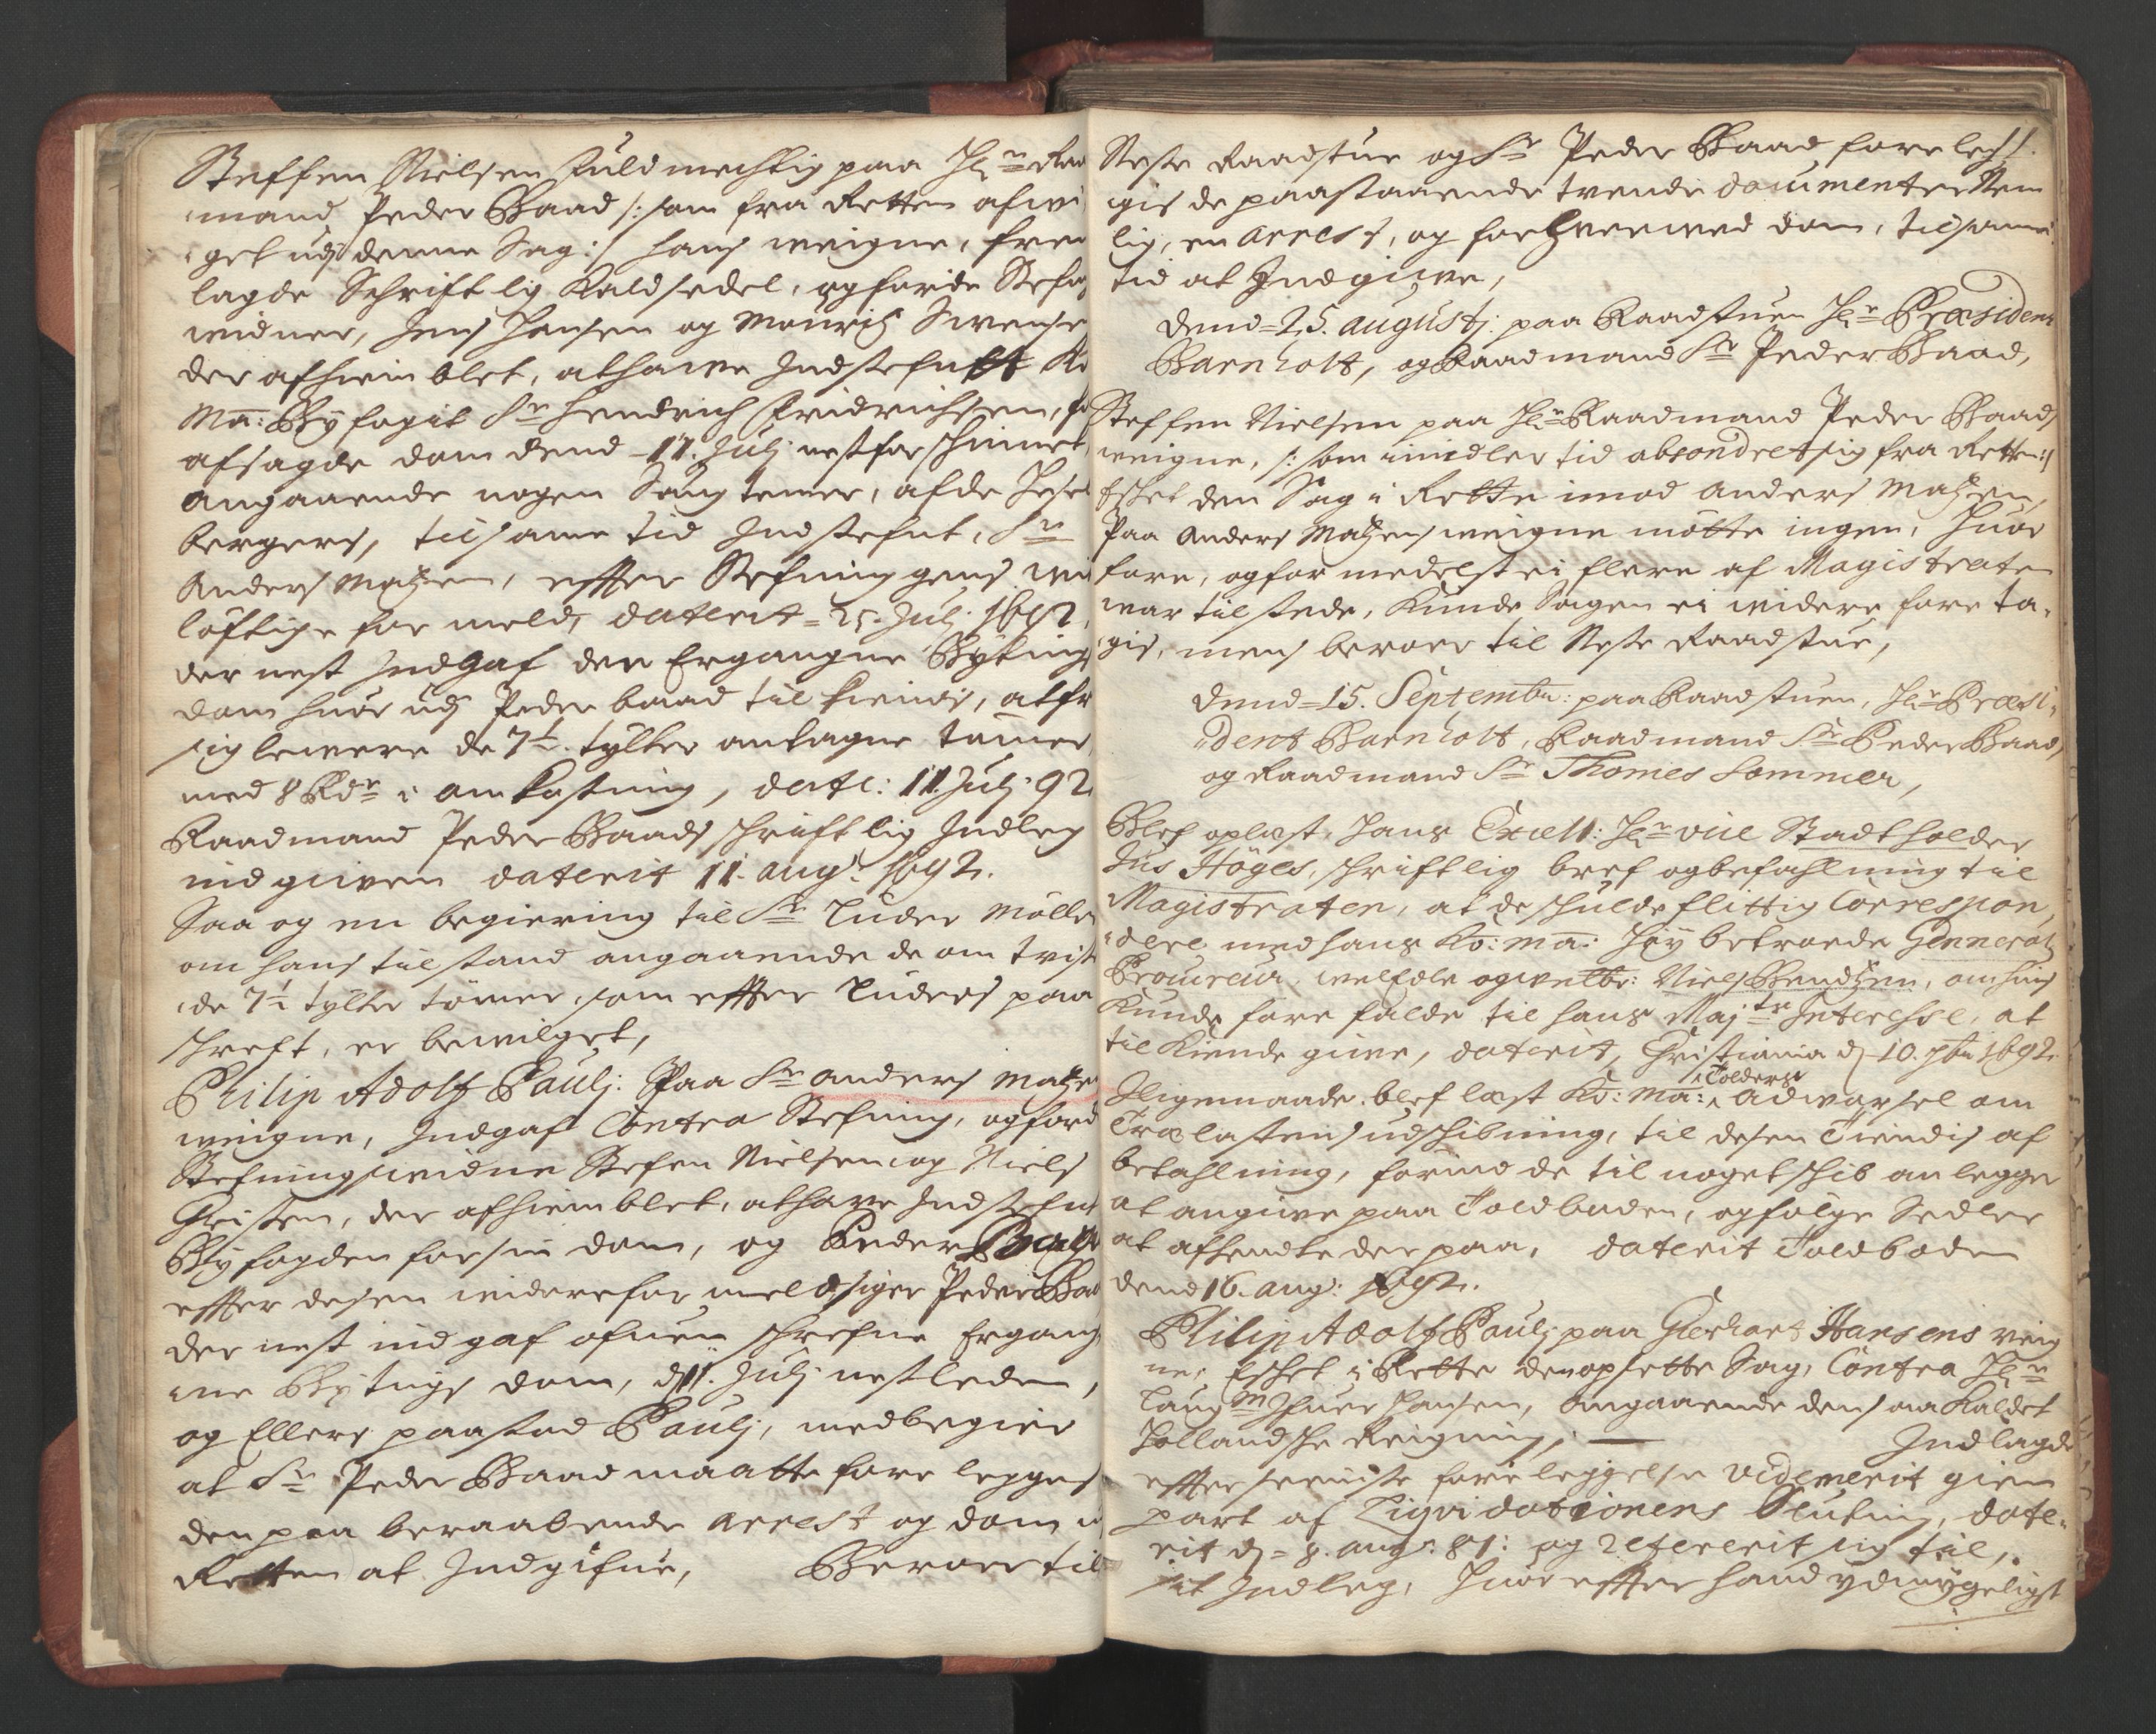 Steffen Nielsen fuldmechtig paa Hr: Raa
mand Peder Baad /: som fra Retten afwi
get udj denne Sag :/ hans weigne, frem
lagde Schriftlig Kaldsedel, og førde Stefn
widner, Jens Hansen og Mouritz Swense
der afhiemblet, at hawe Indstefnt Ko
Ma: Byfogit Sr Hendrich Fridrichsen, for
afsagde dom dend 11. Julj nestforschinnet,
angaaende nogen Saugtemer,
bergers, til samme tid Indstefnt, Sr
Anders Matzen, effter Stefningens wit
løftige formeld, daterit = 25. Julj 1692.
der nest Indgaf den Ergangne Bytings
dom huor udj Peder baad tilkiendis, at
sig lewere de 7½ tylter antagne tømer,
med 8 Rdr i omkostning, date: 11. Julj 92.
Raadmand Peder Baads schriftlig Indleg
indgiwen daterit 11. aug: 1692.
Saa og en begiering til Sr Luder Møller
om hans tilstand angaaende de omtvist
de 7½ tylter tømer, som effter Luders paa
schreft, er bewilget,
Philip Adolf Paulj: Paa Sr anders Matzen
weigne, Indgaf Contra Stefning, og førd
Stefnings widne Stefen Nielsen og Niels
Christen, der afhiemblet, at hawe Indstefnt
Byfogden for sin dom, og Peder Baad
effter desen widere formeld siger Peder Baa
der nest indgaf ofuen schrefne Ergang
ne Bytings dom, dj 11. Julj nestleden,
og Ellers paastod Paulj, med begier
at Sr Peder Baad maatte forelegges
den paa beraabende arrest og dom i
Retten at Indgifue, Beroer til
Neste Raadstue og Sr Peder Baad forelegs.
gis de paastaaende trende documenter Nem
lig, en arrest, og tor hverwed dom, til samme
tid at Indgiwe,
Dend = 25. augustj: paa Raadstuen Hr: Præsident
Barnholt, og Raadmand Sr Peder Baad,
Steffen Nielsen paa Hr: Raadmand Peder Baads
weigne, /: som imidlertid absondret sig fra Retten :/
Esket den Sag i Rette imod Anders Matzen,
Paa Anders Matzens weigne møtte ingen, huor
fore, og formedelst ei flere af Magistraten
war tilstede, Kunde Sagen ei widere foreta,
gis, mens beroer til Neste Raadstue,
Dend = 15. Septembr: paa Raadstuen, Hr: Præsi,
dent Barnholt, Raadmand Sr Peder Baad,
og Raadmand Sr Thomes Sommer,
Blef oplæst, hans Excell: Hr: vice Stadtholder
Jus Høges, schriftlig bref og befahlning til
Magistraten, at de schulde flittig Correspon,
dere med hans Ko: Ma: høy betroede Genneral
Procureur, welEdle og welbr: Niels Bendtzen, om huis
Kunde fore falde til hans Maj:ts Interesse, at
tilkiende giwe, daterit, Christiania dj 10. 1692.
Iligemaade blef læst Ko: Ma: Tolders adwarsel om
Trælastens udschibning, til desen Tiendis af
betahlning, førend de til noget schib anlegge
at angiwe paa Toldboden, og følge Sedler
at afhendte der paa, daterit Toldboden
dend 16. aug: 1692.
Philip Adolf Paulj paa Gierhart Hansens veig
ne, Eschet i Rette den opsette Sag, Contra Hr:
Laugm Ifuer Hansen, angaaende den saa kaldet
Hollandsche Reigning, — Indlagde
effter seeniste foreleggelse viderit gien
part af Liqvidationens Slutning, date,
rit dj = 8. aug: 87: og refererit sig til,
sit Indleg, huor effter hand ydmygeligst